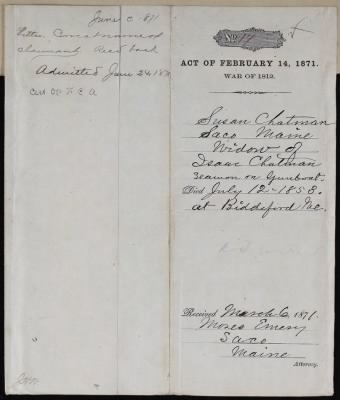 June 6 1871
Letter. Correct name of
claimant. Recd back
Admitted June 24, 1871
No. 17
ACT OF FEBRUARY 14, 1871.
WAR OF 1812.
Susan Chatman
Saco Maine
Widow of
Isaac Chatman
Seaman on Gunboat.
Died July 12-1858.
at Biddeford Me.
Received March 6, 1871.
Moses Emery
Saco
Maine
Attorney.